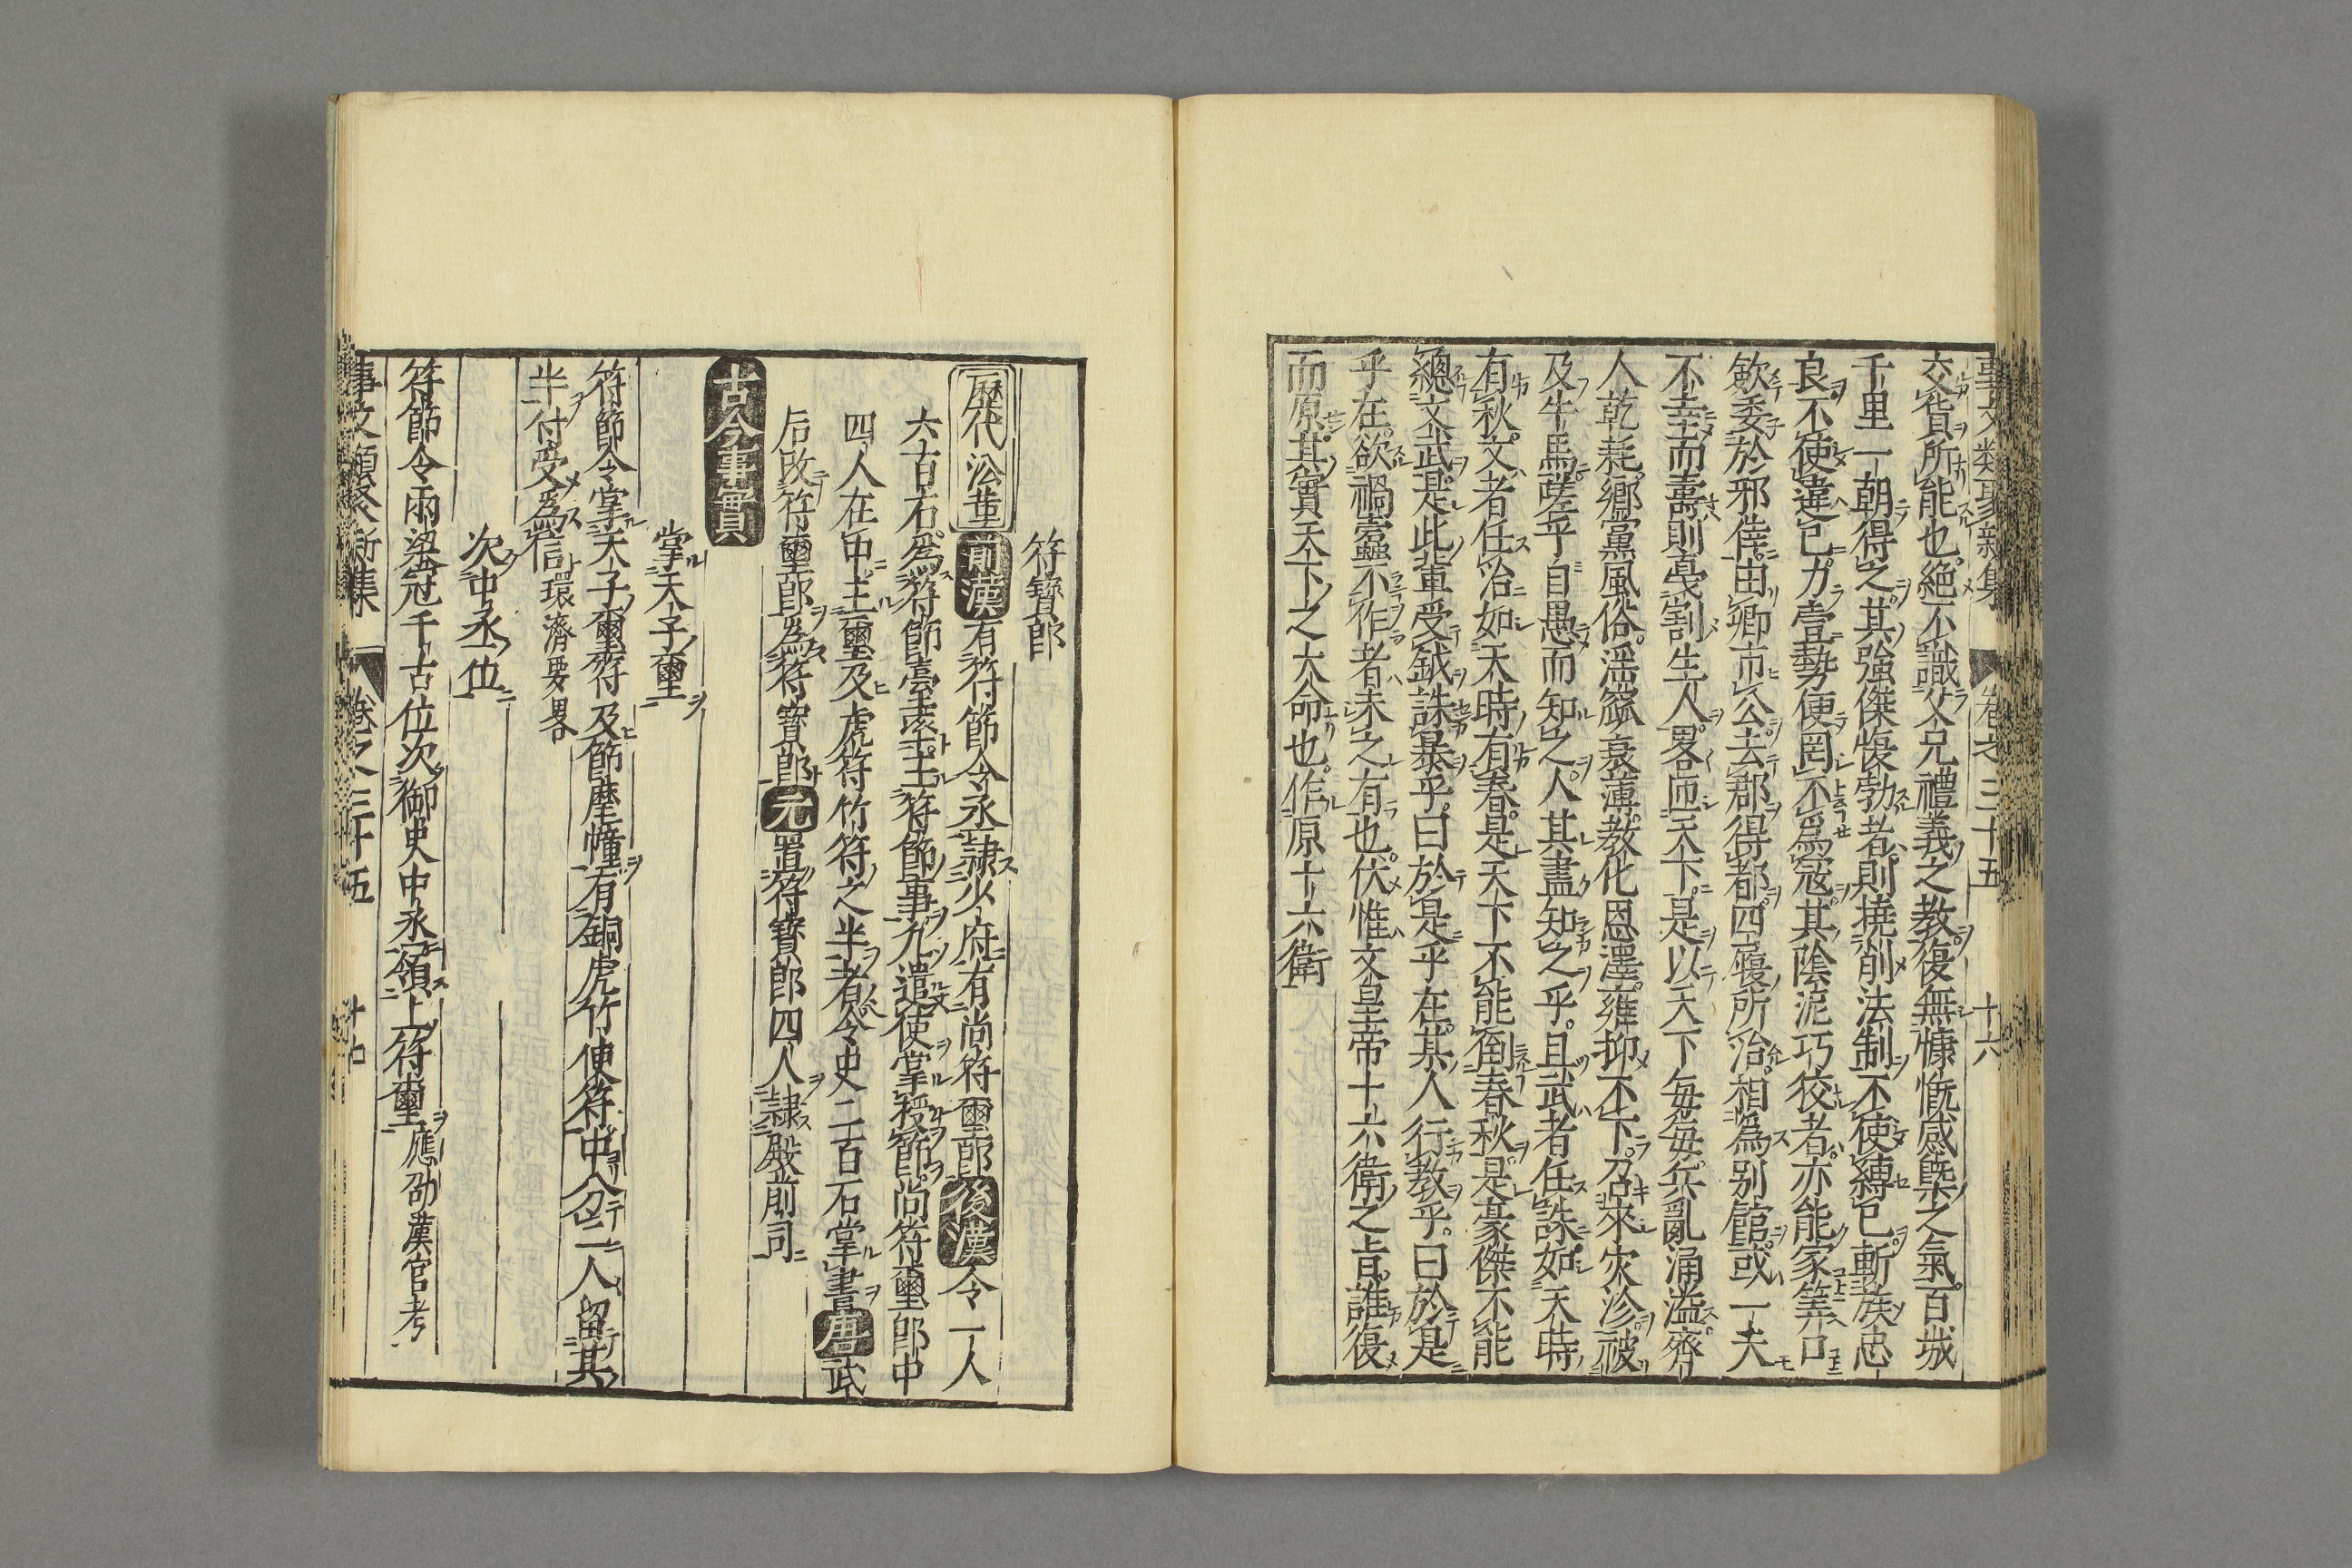 事文類聚新集 卷之三十五 十六
交貨所能也絕不識父兄禮義之教復無慷慨感槩之氣百城
千里一朝得之其強傑愎勃者則撓削法制不使縛已斬族忠
良不使違已力壹勢便罔不爲寇其陰泥巧狡者亦能家筭口
歛委於邪倖由卿市公去郡得都四履所治相爲别館或一夫
不幸而壽則戛割生人畧匝天下是以天下每每兵亂涌溢齊
人乾耗鄉黨風俗滛窳衰薄教化恩澤雍抑不下召來灾沴被
及牛馬嗟乎自愚而知之人其盡知之乎且武者任誅如天時
有秋文者任治如天時有春是天下不能倒春秋是豪傑不能
總文武是此輩受鉞誅暴乎曰於是乎在某人行教乎曰於是
乎在欲禍蠹不作者未之有也伏惟文皇帝十六衛之旨誰復
而原其實天下之大命也作原十六衛
符寶郎
歷代沿革 前漢有符節令丞隷少府有尚符璽郎後漢令一人
六百石爲符節臺率主符節事凡遣使掌授節尚符璽郎中
四人在中主璽及虎符竹符之半者令史二百石掌書唐武
后改符璽郎爲符寶郎元置符寶郎四人隷殿前司
古今事實
掌天子璽
符節令掌天子璽符及節麾幢有銅虎竹使符中分二人留其
半付受爲信環濟要畧
次中丞位
符節令兩梁冠千古位次御史中丞領上符璽應劭漢官考
事文類聚新集 卷之三十五